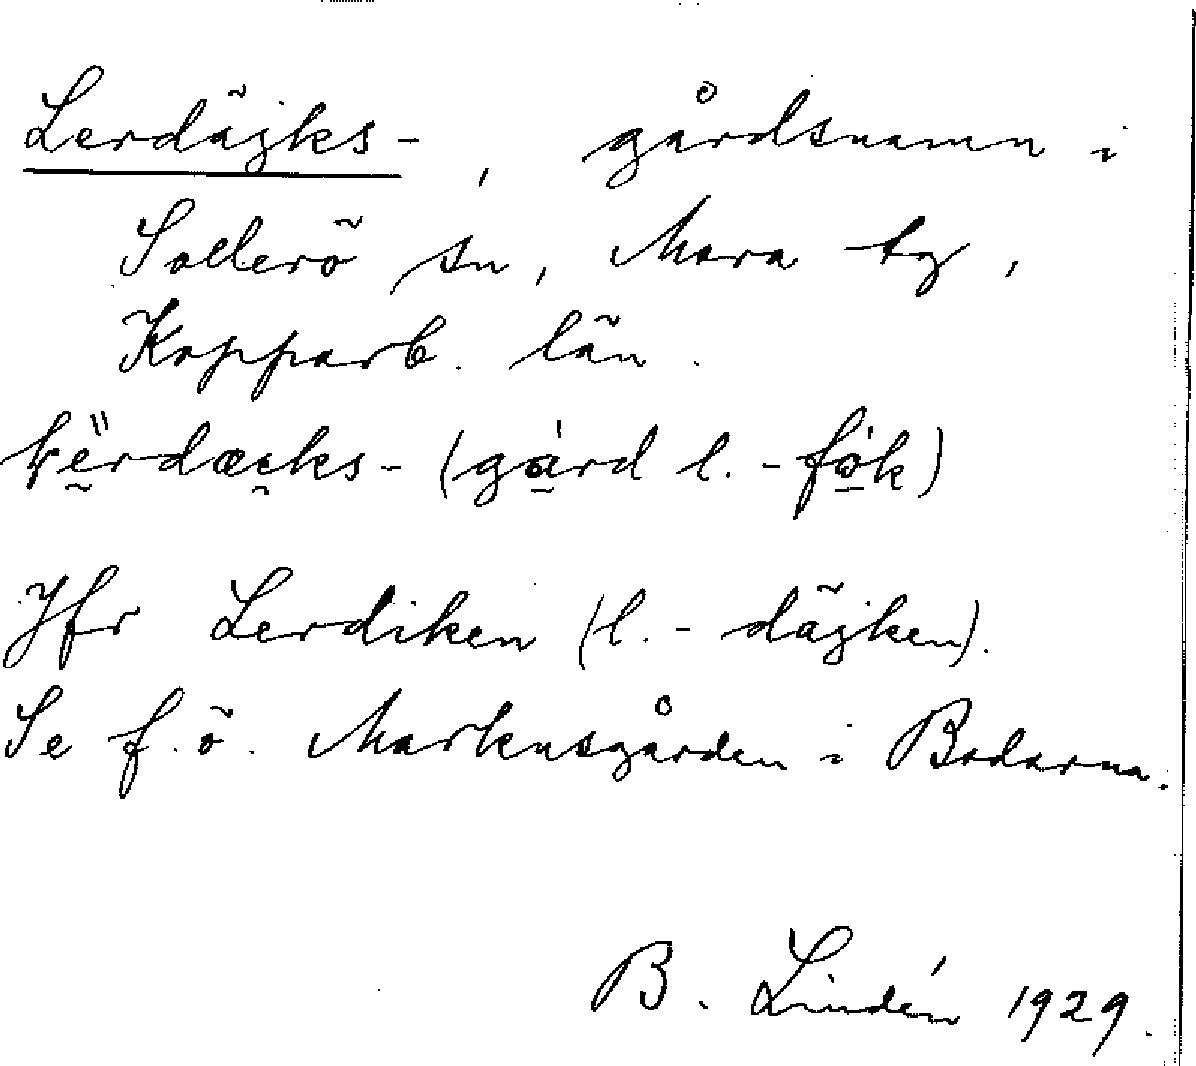 Lerdäjks-, gårdsnamn i
Sollerö sn, Mora tg,
Kopparb. län.
(gård l. -fòk)
Jfr Lerdiken (l. -däjken).
Se f.ö. Markusgården i Bodarna.
B. Lindén 1929.